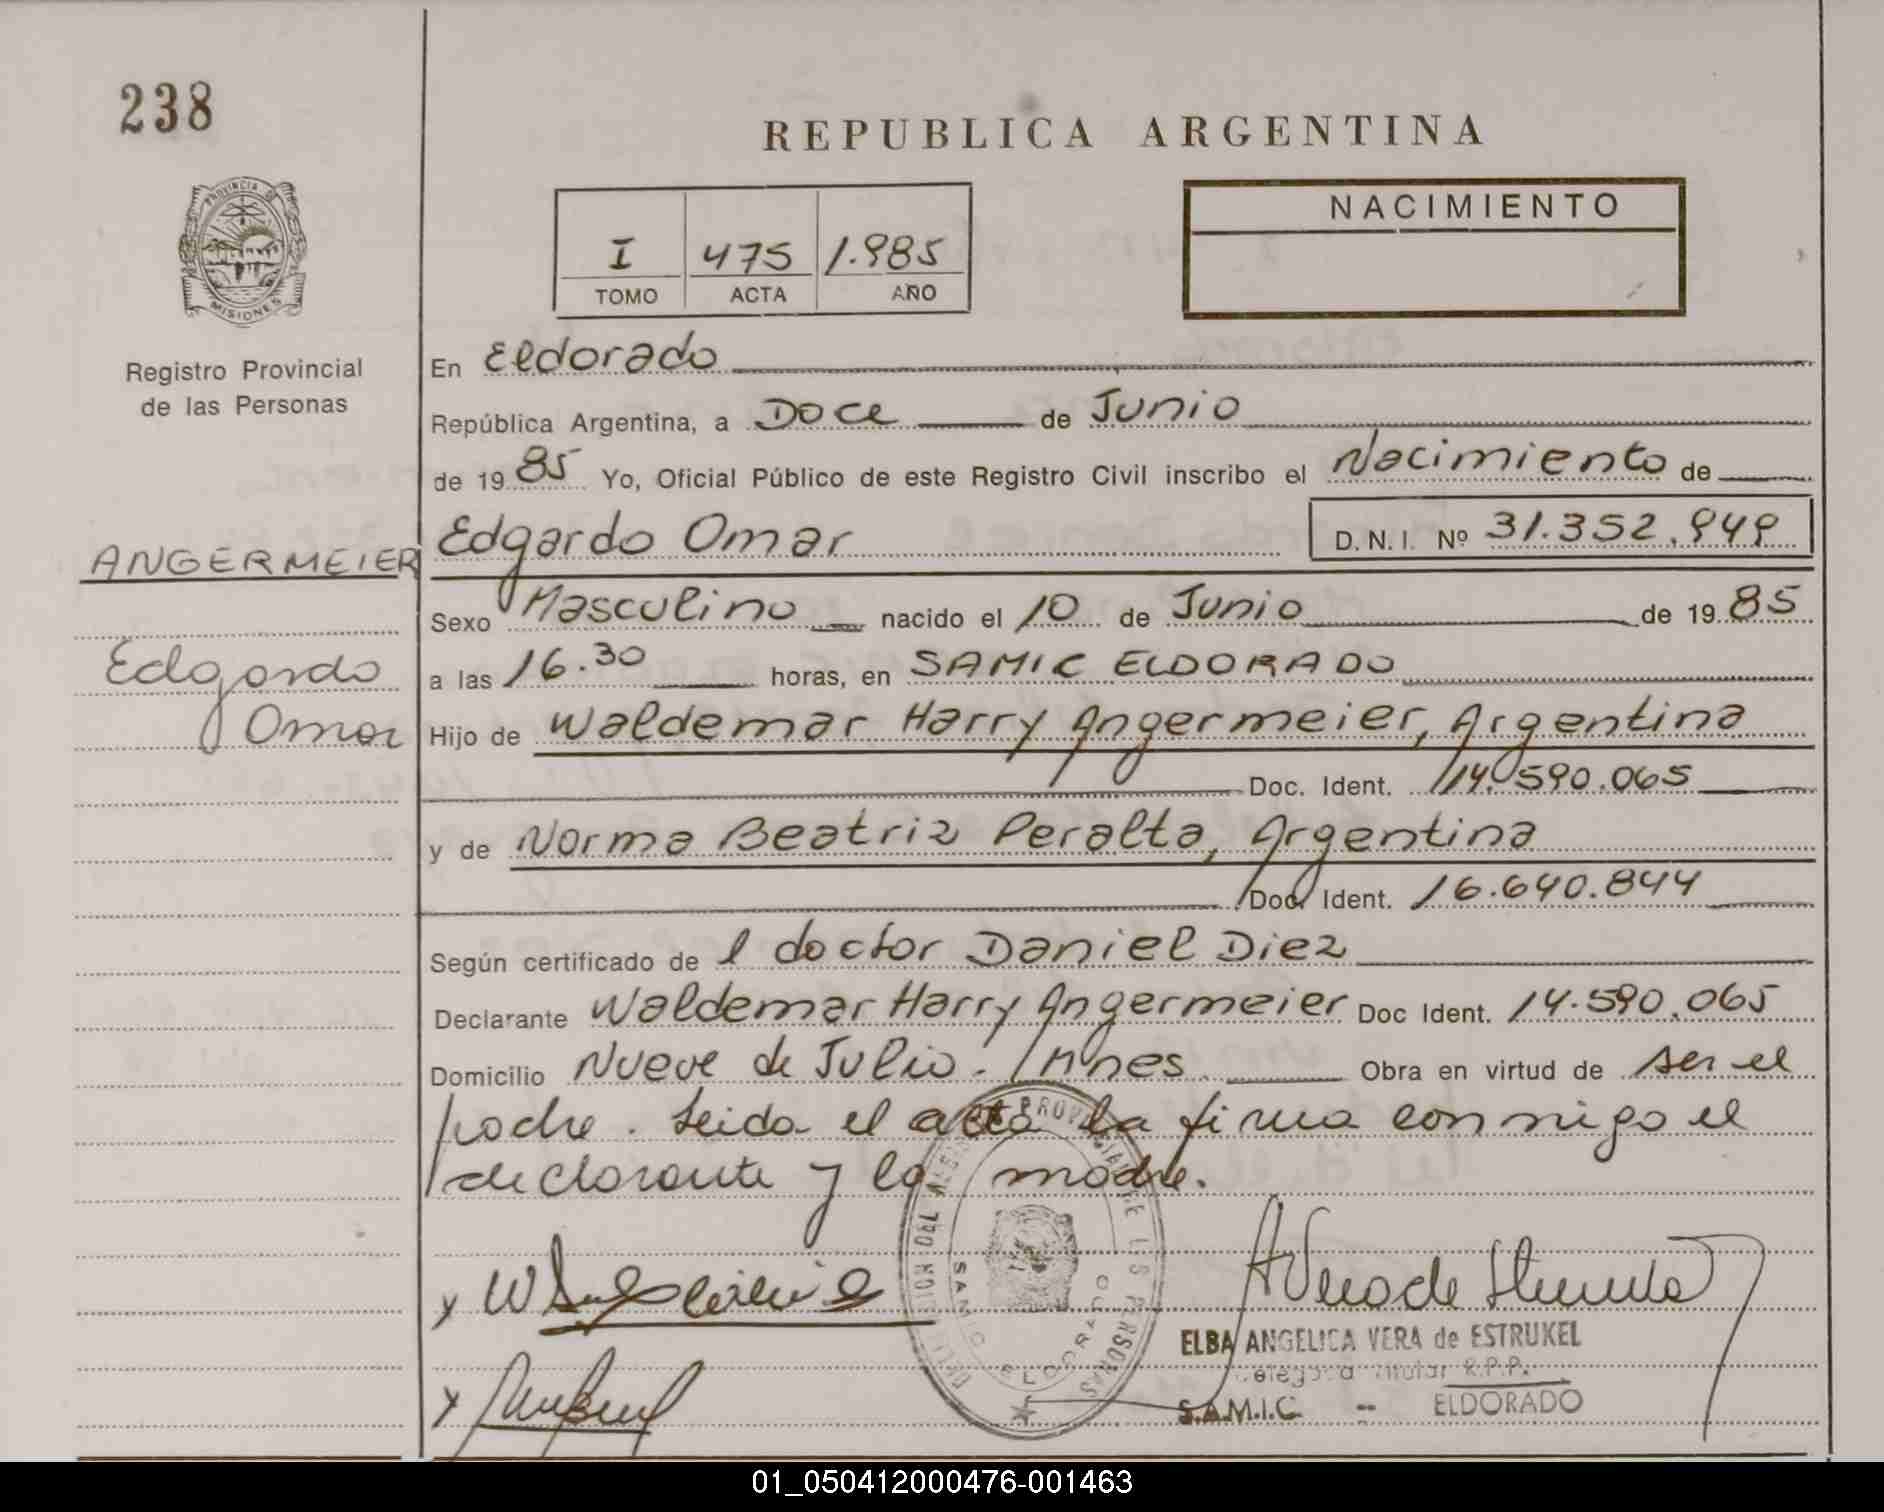 238
REPUBLICA ARGENTINA
PROVINCIA DE
MISIONES
NACIMIENTO
I 475 1.985
TOMO ACTA AÑO
Registro Provincial
de las Personas
En Eldorado
República Argentina, a Doce de Junio
de 1985 Yo, Oficial Público de este Registro Civil inscribo el Nacimiento de
ANGERMEIER
Edgardo Omar D.N.I. Nº 31.352.949
Sexo Masculino nacido el 10 de Junio de 1985
Edgardo
Omar
a las 16.30 horas, en SAMIC ELDORADO
Hijo de Waldemar Harry Angermeier, Argentina
Doc. Ident. 14.590.065
y de Norma Beatriz Peralta, Argentina
Doc. Ident. 16.640.844
Según certificado de l doctor Daniel Diez
Declarante Waldemar Harry Angermeier Doc Ident. 14.590.065
Domicilio Nueve de Julio. Mnes. Obra en virtud de ser el
padre. Leida el acta la firma conmigo el
declarante y la madre.
DELEGACION DEL REGISTRO PROVINCIAL DE LAS PERSONAS
SAMIC ELDORADO
A Vera de Estrukel
ELBA ANGELICA VERA de ESTRUKEL
Delegada Titular R.P.P.
S.A.M.I.C. -- ELDORADO
01_050412000476-001463